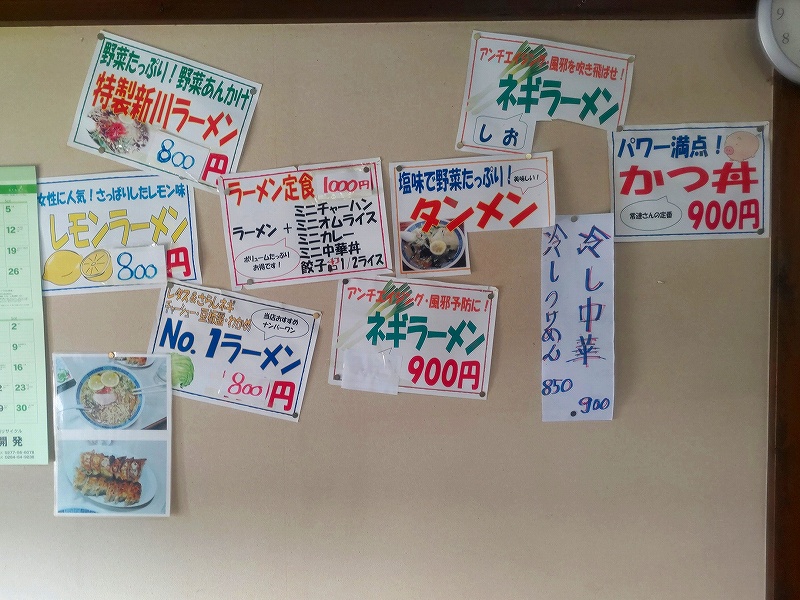 野菜たっぷり！野菜あんかけ
特製新川ラーメン
800円
アンチエイジング・風邪を吹き飛ばせ！
ネギラーメン
しお
パワー満点！
かつ丼
常連さんの定番
900円
女性に人気！さっぱりしたレモン味
レモンラーメン
800円
ラーメン定食 1000円
ラーメン +
ミニチャーハン
ミニオムライス
ミニカレー
ミニ中華丼
餃子 1/2ライス
ボリュームたっぷり
お得です！
塩味で野菜たっぷり！
美味しい！
タンメン
冷し中華
900
冷しつけめん
850
レタス&さらしネギ
当店おすすめ
ナンバーワン
No.1ラーメン
800円
アンチエイジング・風邪予防に！
ネギラーメン
900円
5
12
19
26
2
9
16
23
30
開発
9
8